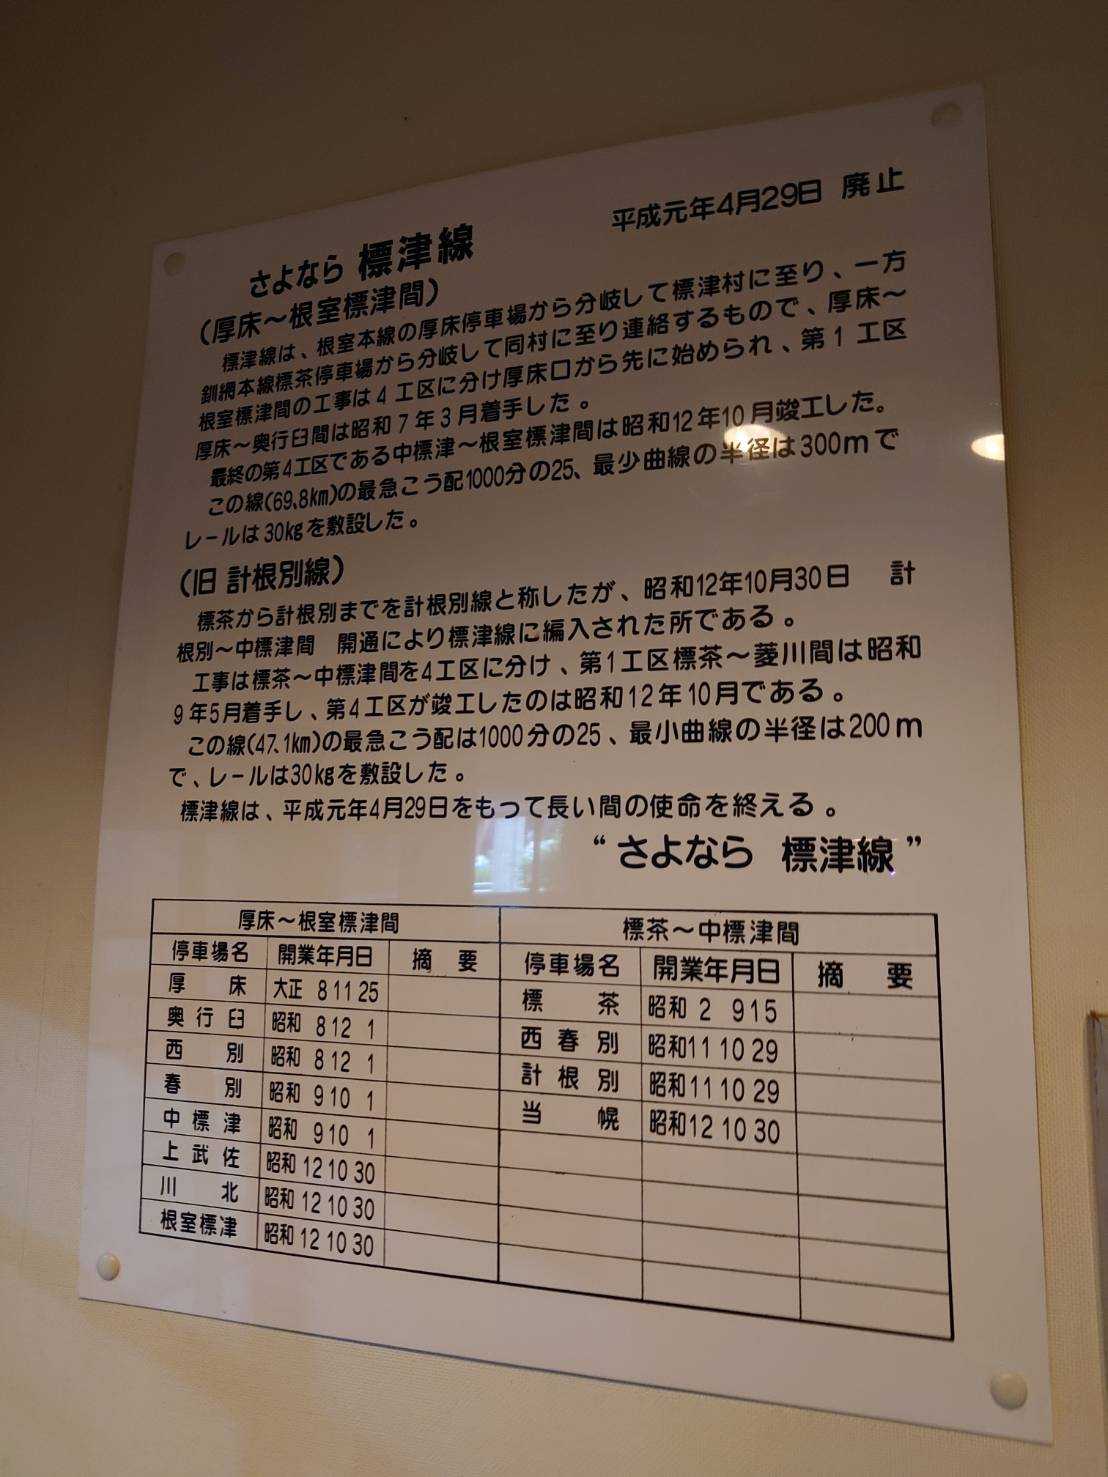 平成元年4月29日 廃止
さよなら 標津線
(厚床～根室標津間)
標津線は、根室本線の厚床停車場から分岐して標津村に至り、一方
釧網本線標茶停車場から分岐して同村に至り連絡するもので、厚床～
根室標津間の工事は4工区に分け厚床口から先に始められ、第1工区
厚床～奥行臼間は昭和7年3月着手した。
最終の第4工区である中標津～根室標津間は昭和12年10月竣工した。
この線(69.8km)の最急こう配1000分の25、最少曲線の半径は300mで
レールは30kgを敷設した。
(旧 計根別線)
標茶から計根別までを計根別線と称したが、昭和12年10月30日 計
根別～中標津間 開通により標津線に編入された所である。
工事は標茶～中標津間を4工区に分け、第1工区標茶～菱川間は昭和
9年5月着手し、第4工区が竣工したのは昭和12年10月である。
この線(47.1km)の最急こう配は1000分の25、最小曲線の半径は200m
で、レールは30kgを敷設した。
標津線は、平成元年4月29日をもって長い間の使命を終える。
“さよなら 標津線”
厚床～根室標津間 標茶～中標津間
停車場名 開業年月日 摘要 停車場名 開業年月日 摘要
厚床 大正 8 11 25 標茶 昭和 2 9 15
奥行臼 昭和 8 12 1 西春別 昭和 11 10 29
西別 昭和 8 12 1 計根別 昭和 11 10 29
春別 昭和 9 10 1 当幌 昭和 12 10 30
中標津 昭和 9 10 1
上武佐 昭和 12 10 30
川北 昭和 12 10 30
根室標津 昭和 12 10 30